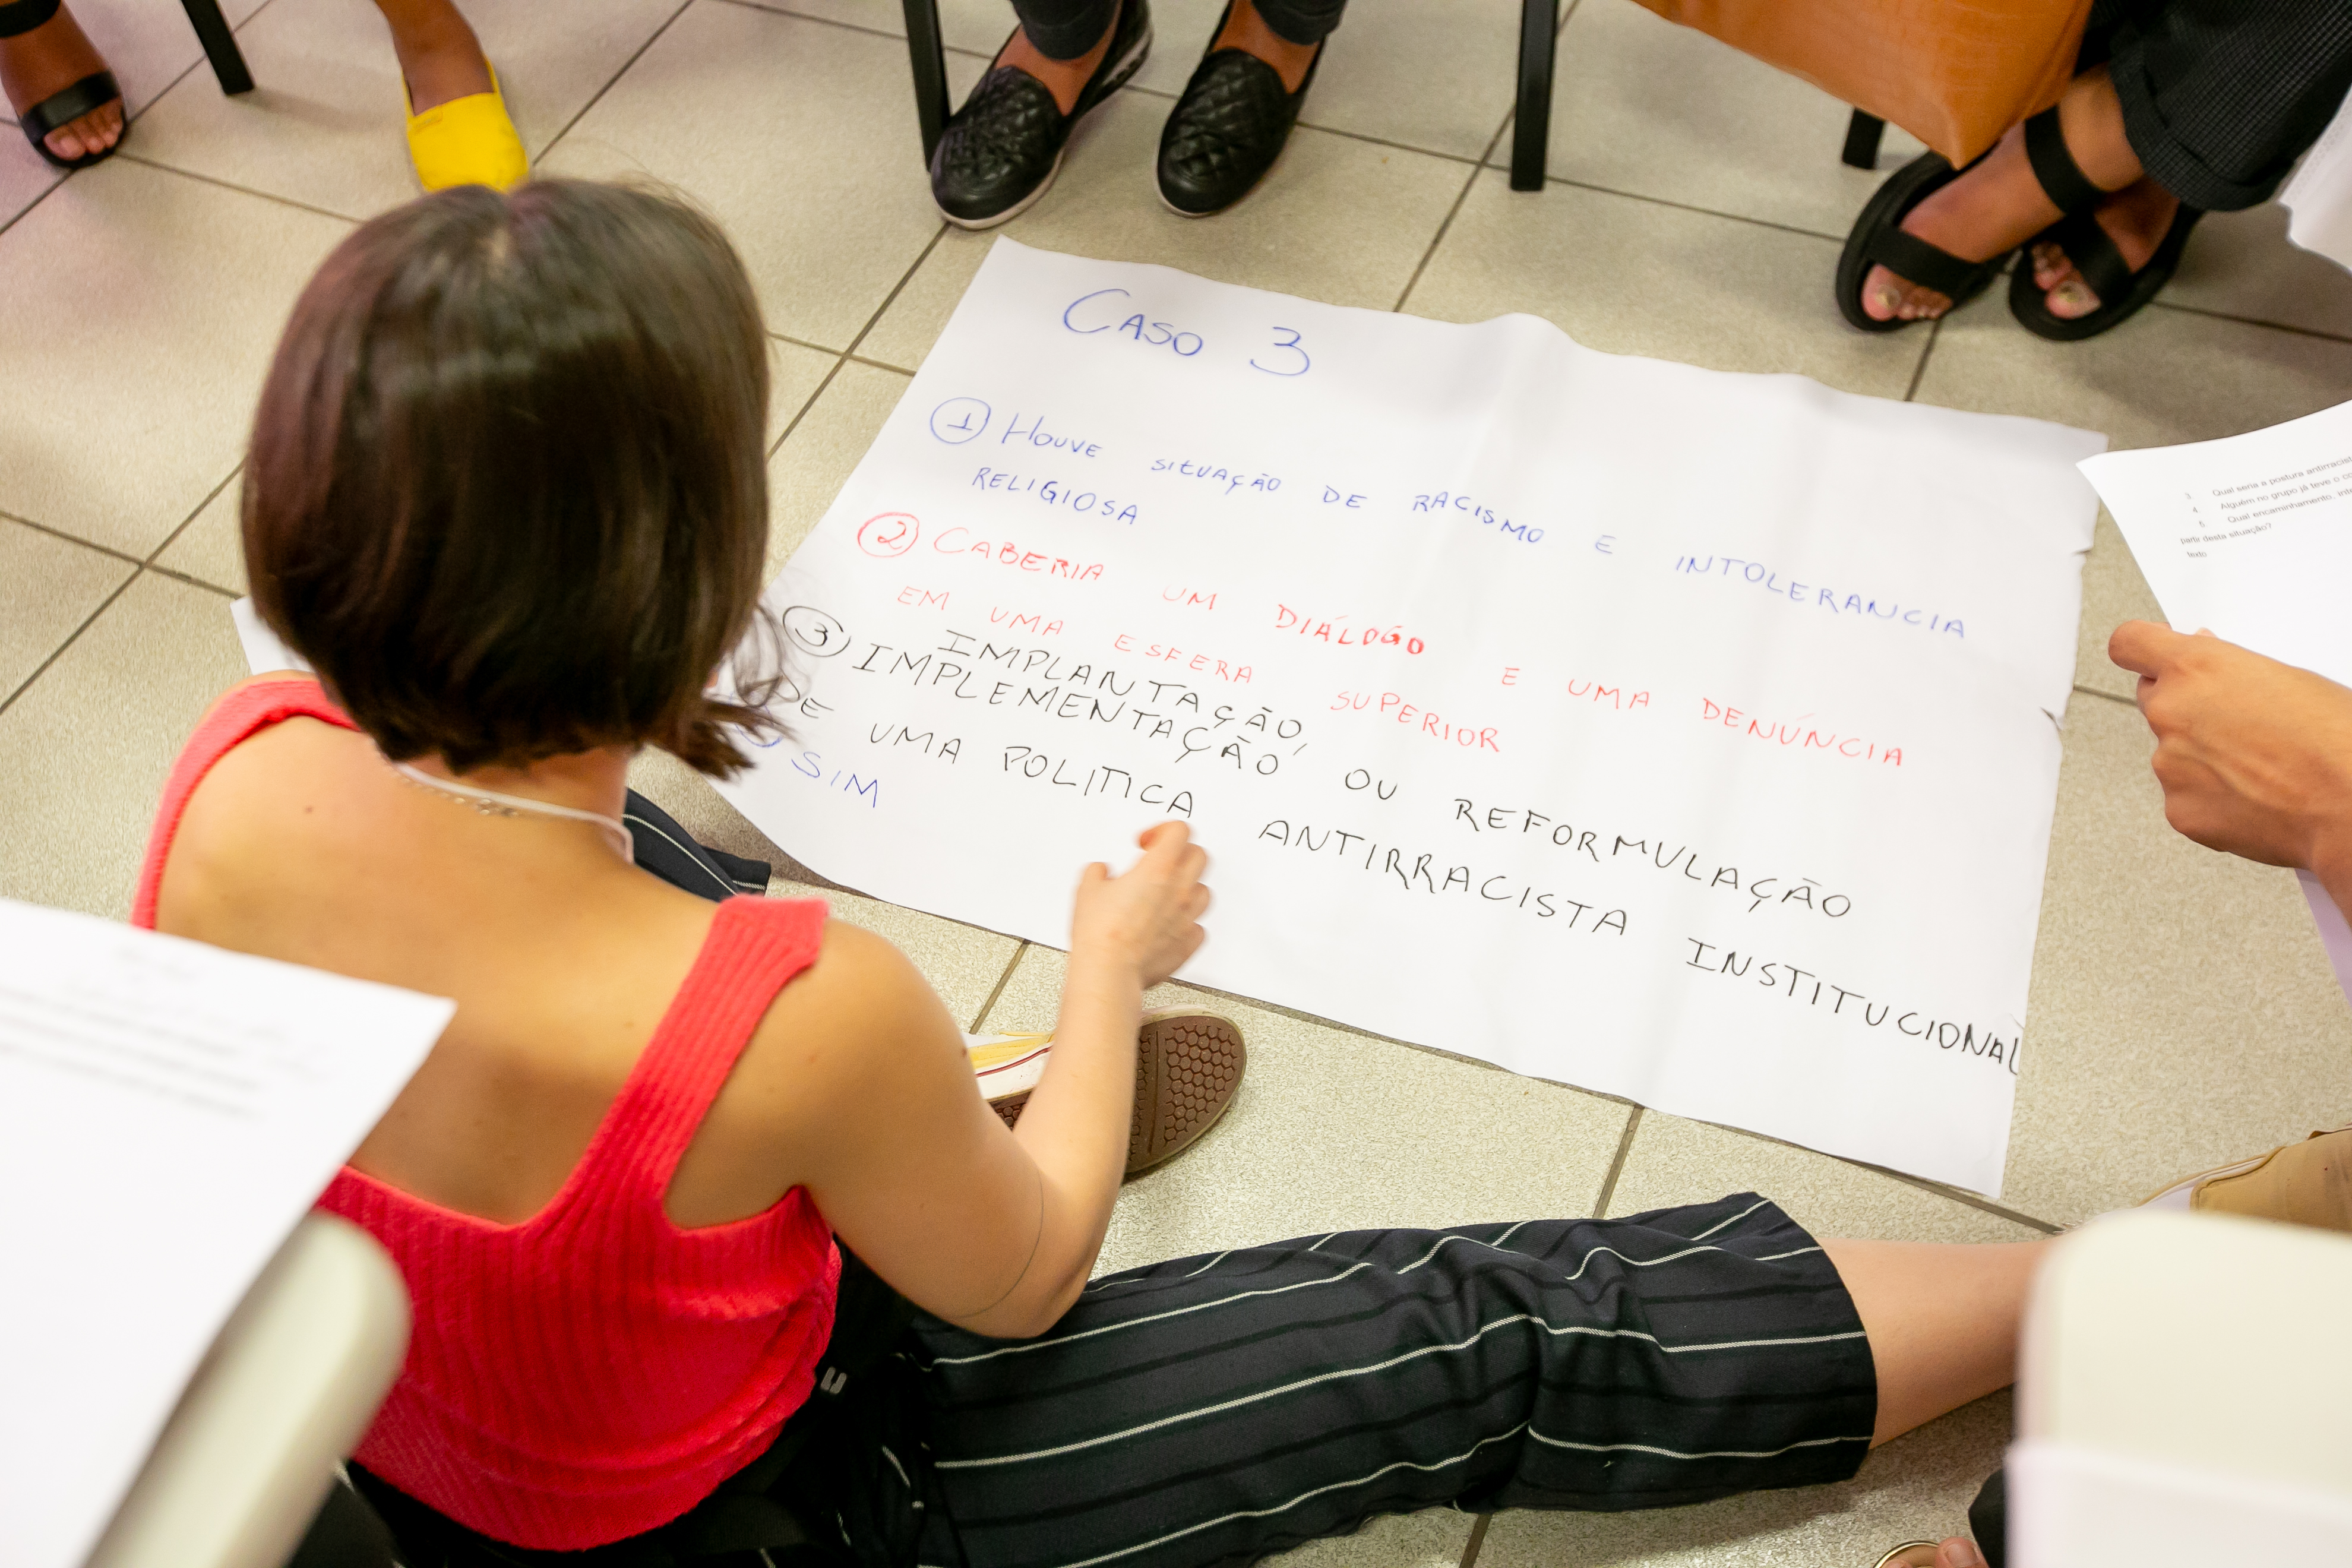 CASO 3
1 HOUVE SITUAÇÃO DE RACISMO E INTOLERANCIA
RELIGIOSA
2 CABERIA UM DIÁLOGO E UMA DENÚNCIA
EM UMA ESFERA SUPERIOR
3 IMPLANTAÇÃO,
IMPLEMENTAÇÃO, OU REFORMULAÇÃO
DE UMA POLITICA ANTIRRACISTA INSTITUCIONAL
SIM
3. Qual seria a postura antirracist
4. Alguém no grupo já teve o co
5. Qual encaminhamento, inte
partir desta situação?
texto